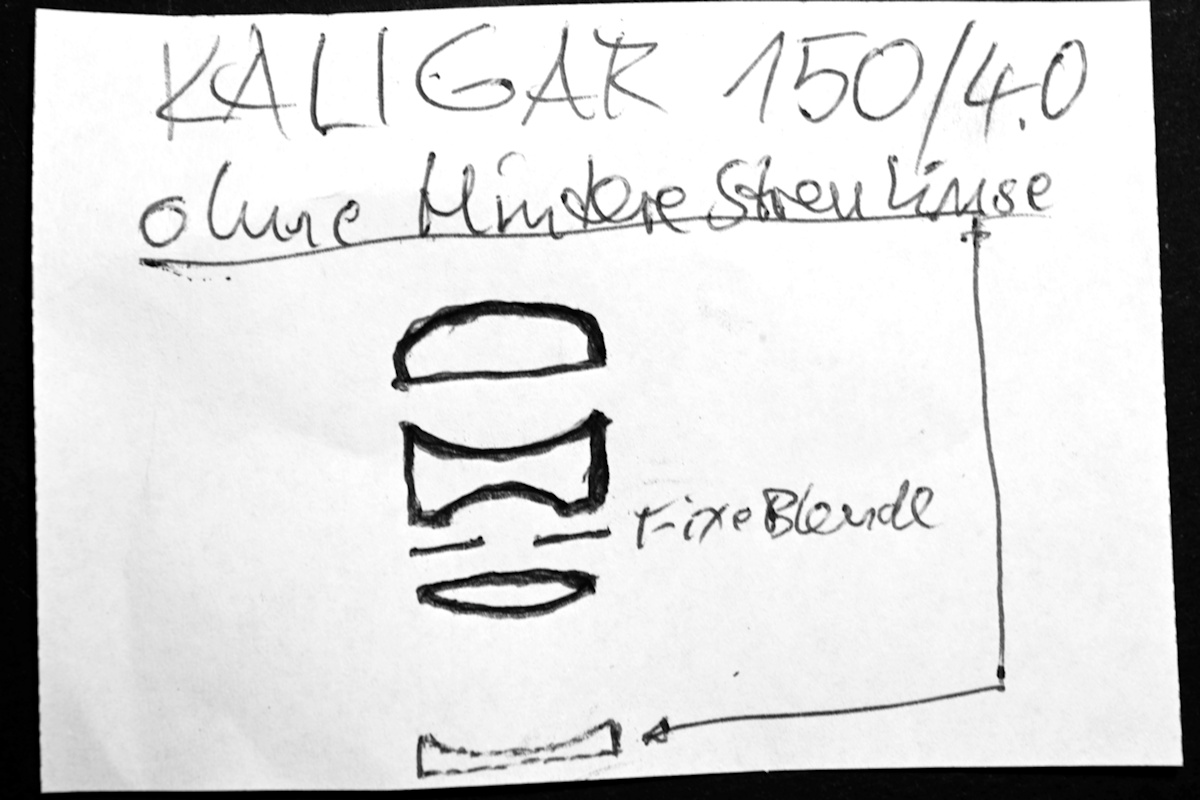 KALIGAR 150/4.0
ohne Hintere Streu Linse
Fixe Blende